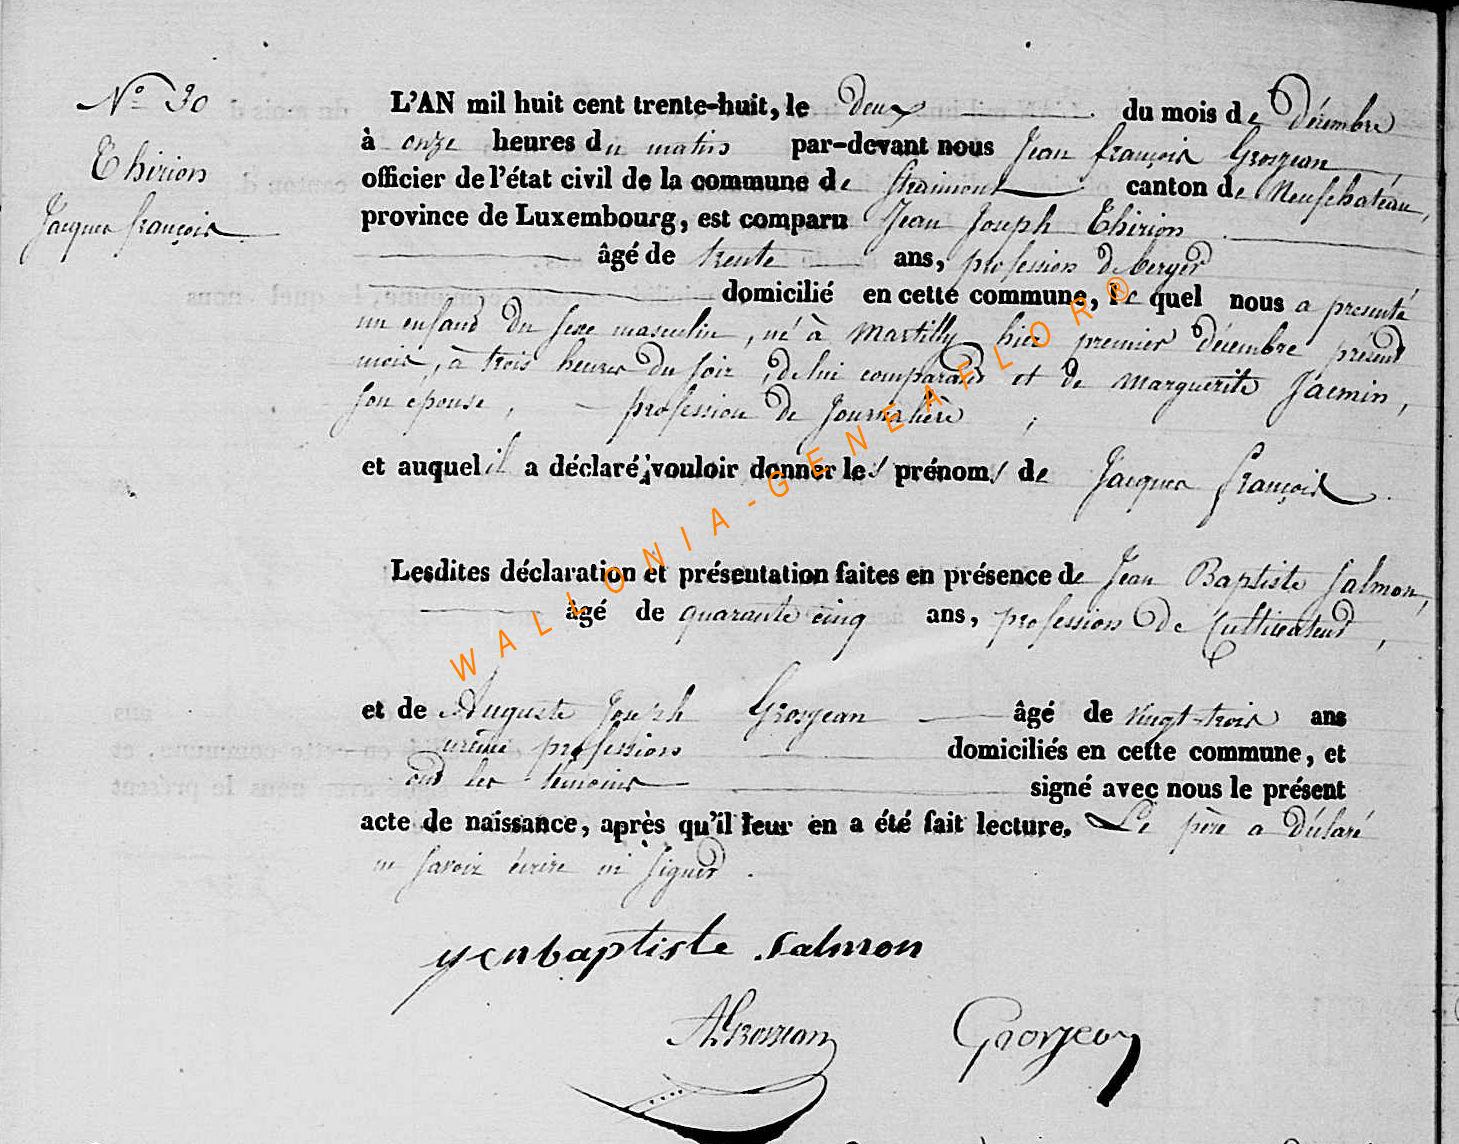 N° 30
Thirion
Jacques françois
L'AN mil huit cent trente-huit, le deux du mois de décembre
à onze heures du matin par-devant nous Jean françois Grosjean,
officier de l'état civil de la commune de Straimont canton de Neufchateau,
province de Luxembourg, est comparu Jean Joseph Thirion
âgé de trente ans, profession de berger
domicilié en cette commune, le quel nous a presenté
un enfant du sexe masculin, né à Martilly hier premier décembre présent
mois, à trois heures du soir, de lui comparant et de Marguerite Jacmin,
son epouse, profession de Journalière ;
et auquel il a déclaré vouloir donner les prénoms de Jacques françois.
Lesdites déclaration et présentation faites en présence de Jean Baptiste Salmon,
âgé de quarante cinq ans, profession de Cultivateur,
et de Auguste Joseph Grosjean âgé de vingt-trois ans
même profession domiciliés en cette commune, et
ont les témoins signé avec nous le présent
acte de naissance, après qu'il leur en a été fait lecture. Le père a déclaré
ne savoir écrire ni signer.
yenbaptiste salmon
AGrosjean Grosjean
WALLONIA-GENEAFLOR®